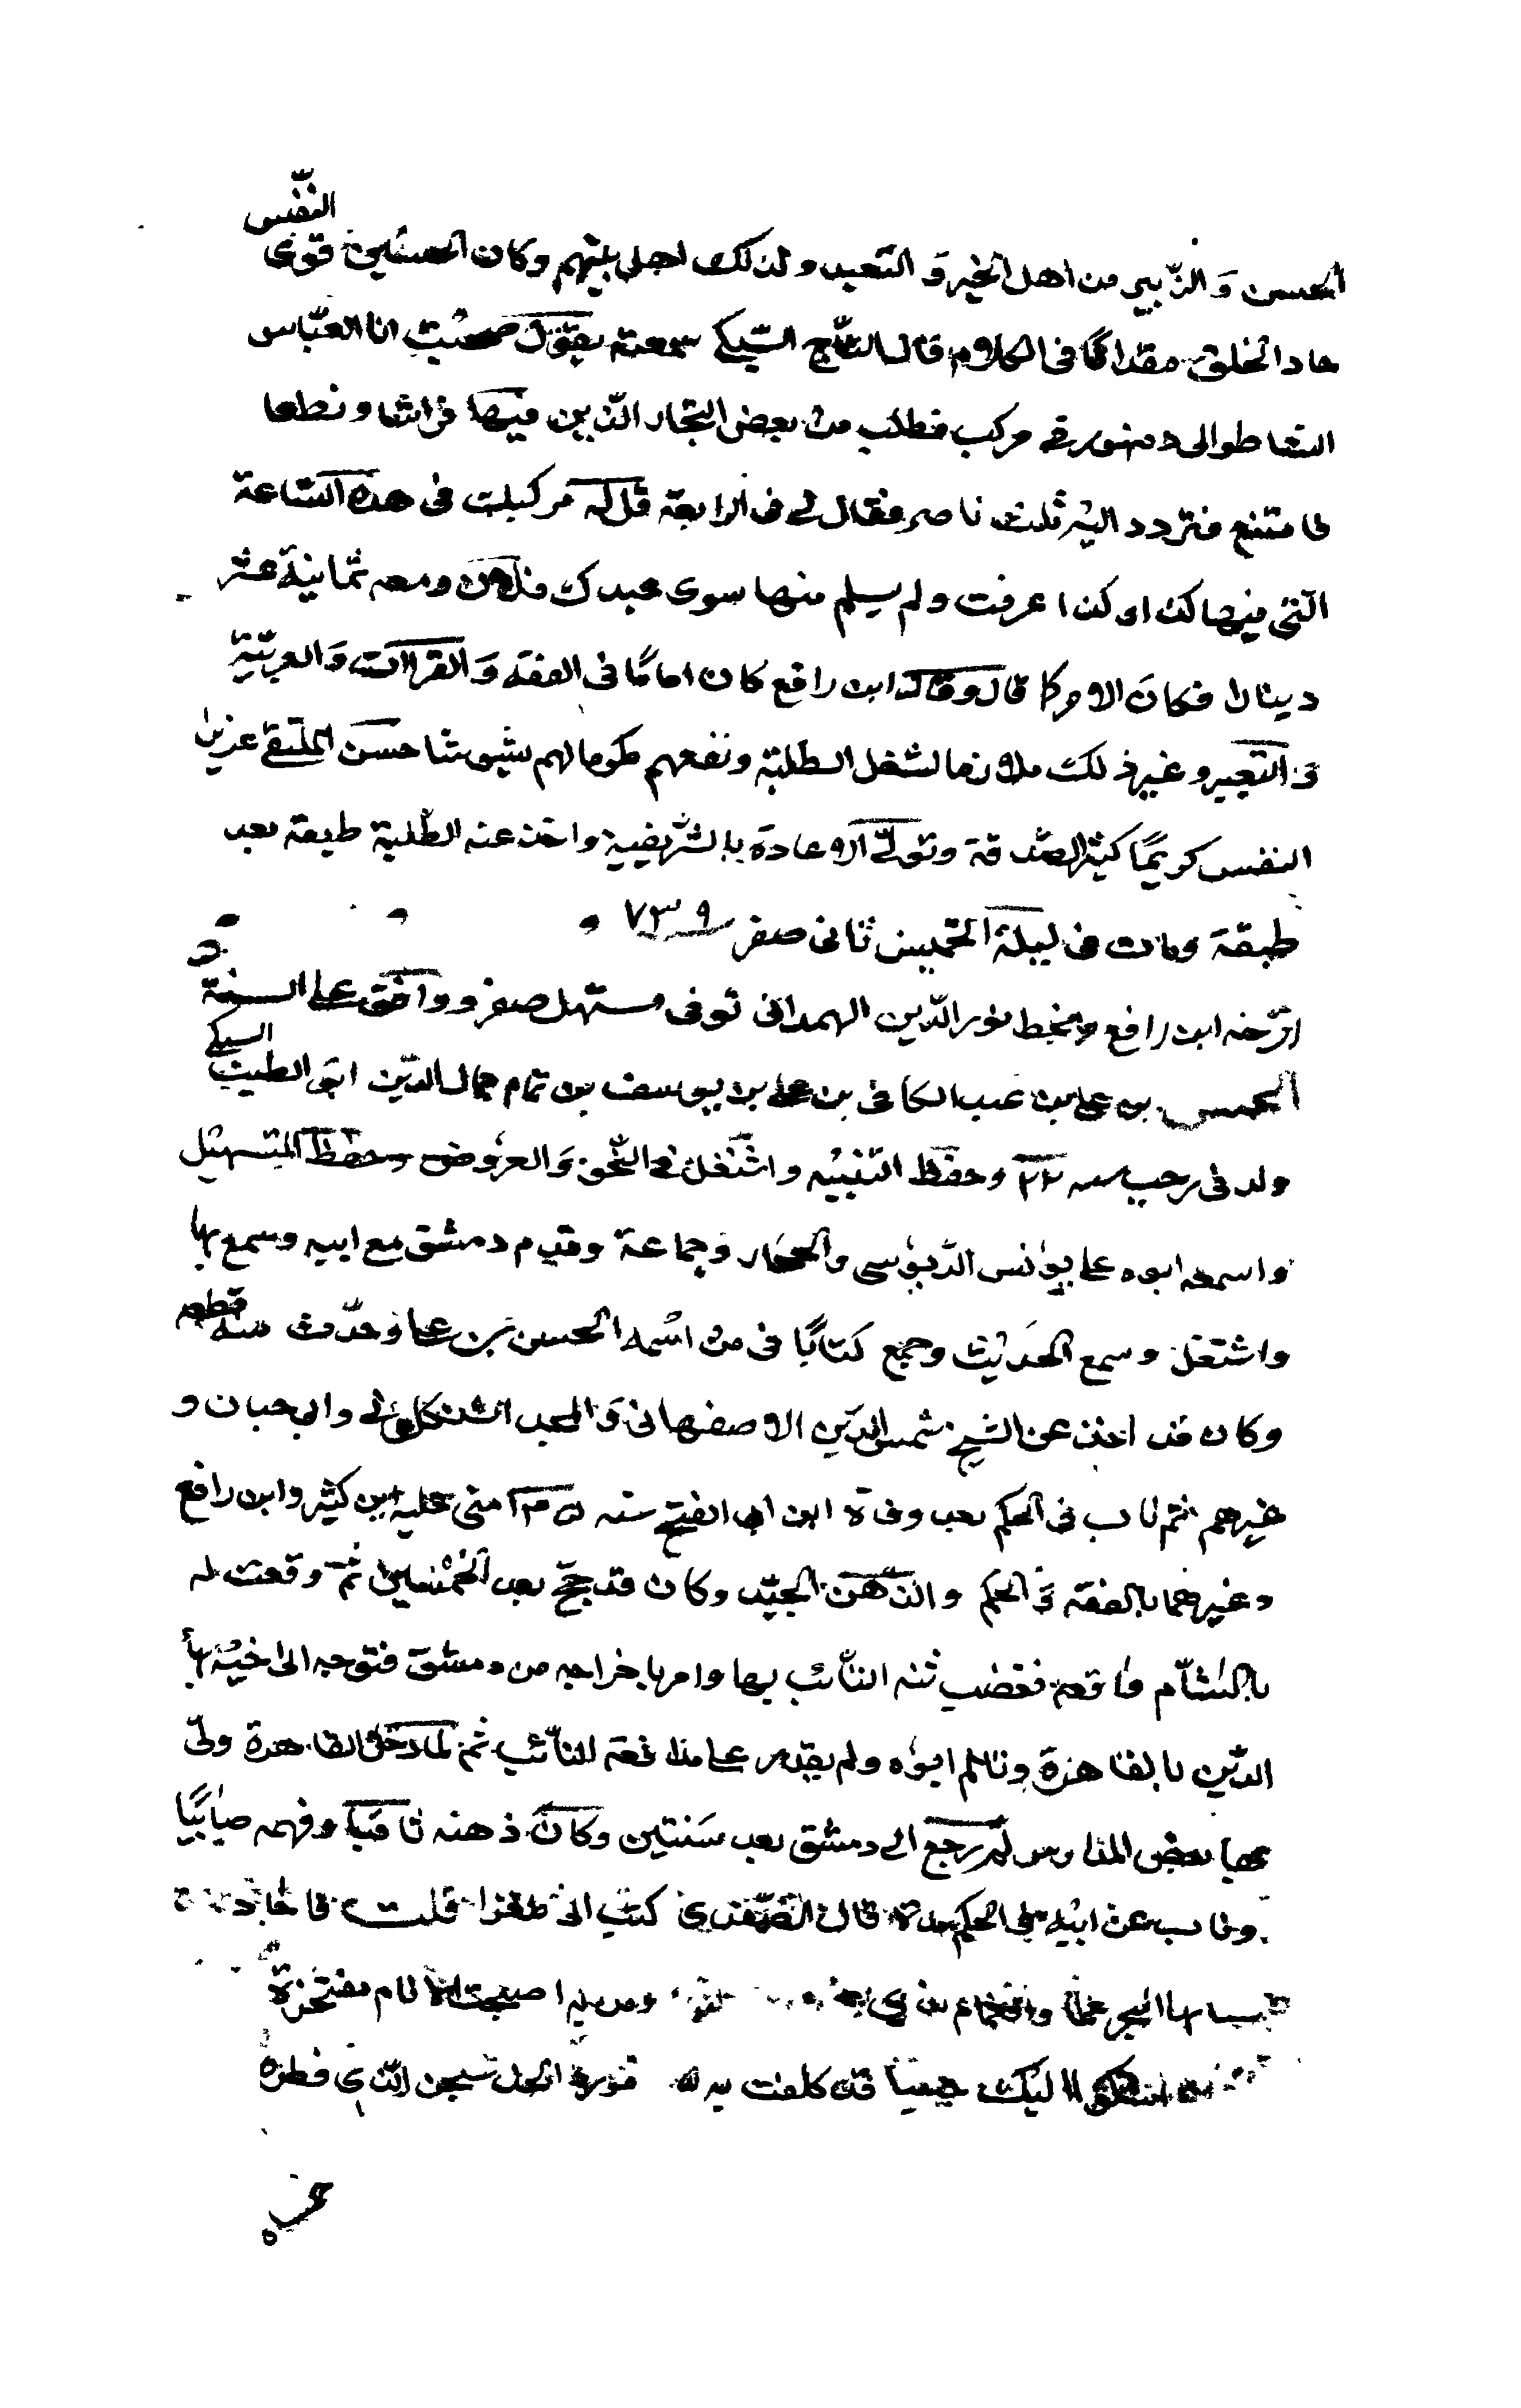 النفس
الحسن والزبير من اهل الخير و التعبد ولذلك اهل بيتهم وكان الحسين قوى
حاد الخلق مقداما فى الكلام قال التاج السبكى سمعته يقول صحبت ابا العباس
الشاطر الى دمنهور فى مركب فطلب من بعض التجار الذين فيها فراشا و نطعا
فامتنع فتردد اليه ثلث فقال لى فى الرابعة قل له مركبك فى هذه الساعة
التى فيها كذا وكذا غرقت ولم يسلم منها سوى عبدك فلان ومعه ثمانية عشر
دينارا فكان الامر كما قال وقال ابن رافع كان اماما فى الفقه والقراات والعربية
و التعبير وغير ذلك ملازما لشغل الطلبة ونفعهم بشوشا حسن الملتقى عزيز
النفس كريما كثير الصدقة وتولى الاعادة بالشريفية واخذ عنه الطلبة طبقة بعد
طبقة ومات فى ليلة الخميس ثانى صفر ٧٣٩
ارخه ابن رافع وبخط نور الدين الهمدانى توفى مستهل صفر ووافق على السنة
السبكى
الحسين بن على بن عبد الكافى بن على بن يوسف بن تمام جمال الدين ابى الطيب
ولد فى رجب سنه ٢٢ وحفظ التنبيه واشتغل فى النحو والعروض وحفظ التسهيل
واسمعه ابوه على يونس الدبوسى والحجار وجماعة وقدم دمشق مع ابيه وسمع بها
واشتغل وسمع الحديث وجمع كتابا فى من اسمه الحسين بن على وحدث منه بقطعه
وكان قد اخذ عن الشيخ شمس الدين الاصفهانى والمجد الزنكلونى وابى حيان و
غيرهم ثم ناب فى الحكم بعد وفاة ابن ابى الفتح سنه ٤٥ اثنى عليه ابن كثير وابن رافع
وغيرهما بالفقه و الحكم والذهن الجيد وكان قد حج بعد الخمسين ثم وقعت له
بالشام واقعة فغضب منه النائب بها وامر باخراجه من دمشق فتوجه الى اخيه بها
الدين بالقاهرة وتالم ابوه ولم يقدر على مدافعة النائب ثم لما دخل القاهرة ولى
بها بعض المدارس ثم رجع الى دمشق بعد سنتين وكان ذهنه ثاقبا وفهمه صائبا
وناب عن ابيه فى الحكم قال الصفدى كتب الى ملغزا قلت
اصبحت الانام مفتخرة
اليك قد كلفت به